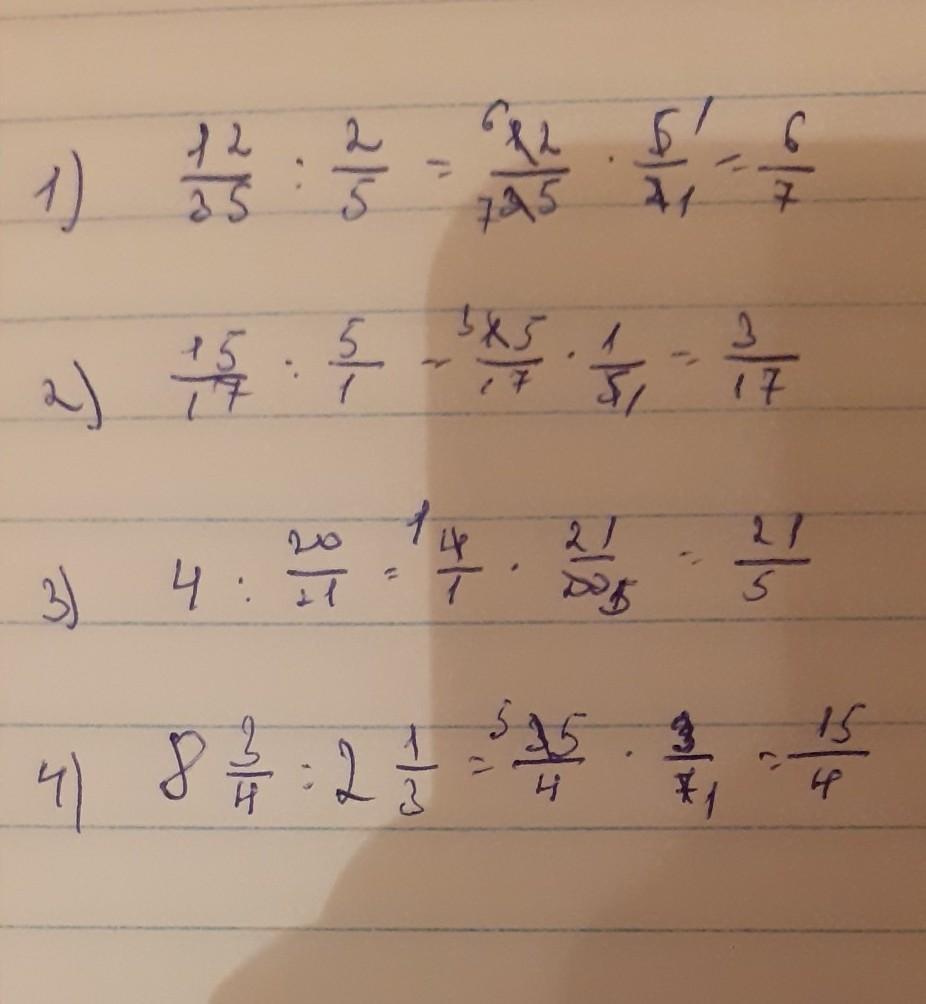 1) 12/35 : 2/5 = 6 12/7 35 · 5 1/2 1 = 6/7
2) 15/17 : 5/1 = 3 15/17 · 1/5 1 = 3/17
3) 4 : 20/21 = 1 4/1 · 21/20 5 = 21/5
4) 8 3/4 : 2 1/3 = 5 35/4 · 3/7 1 = 15/4